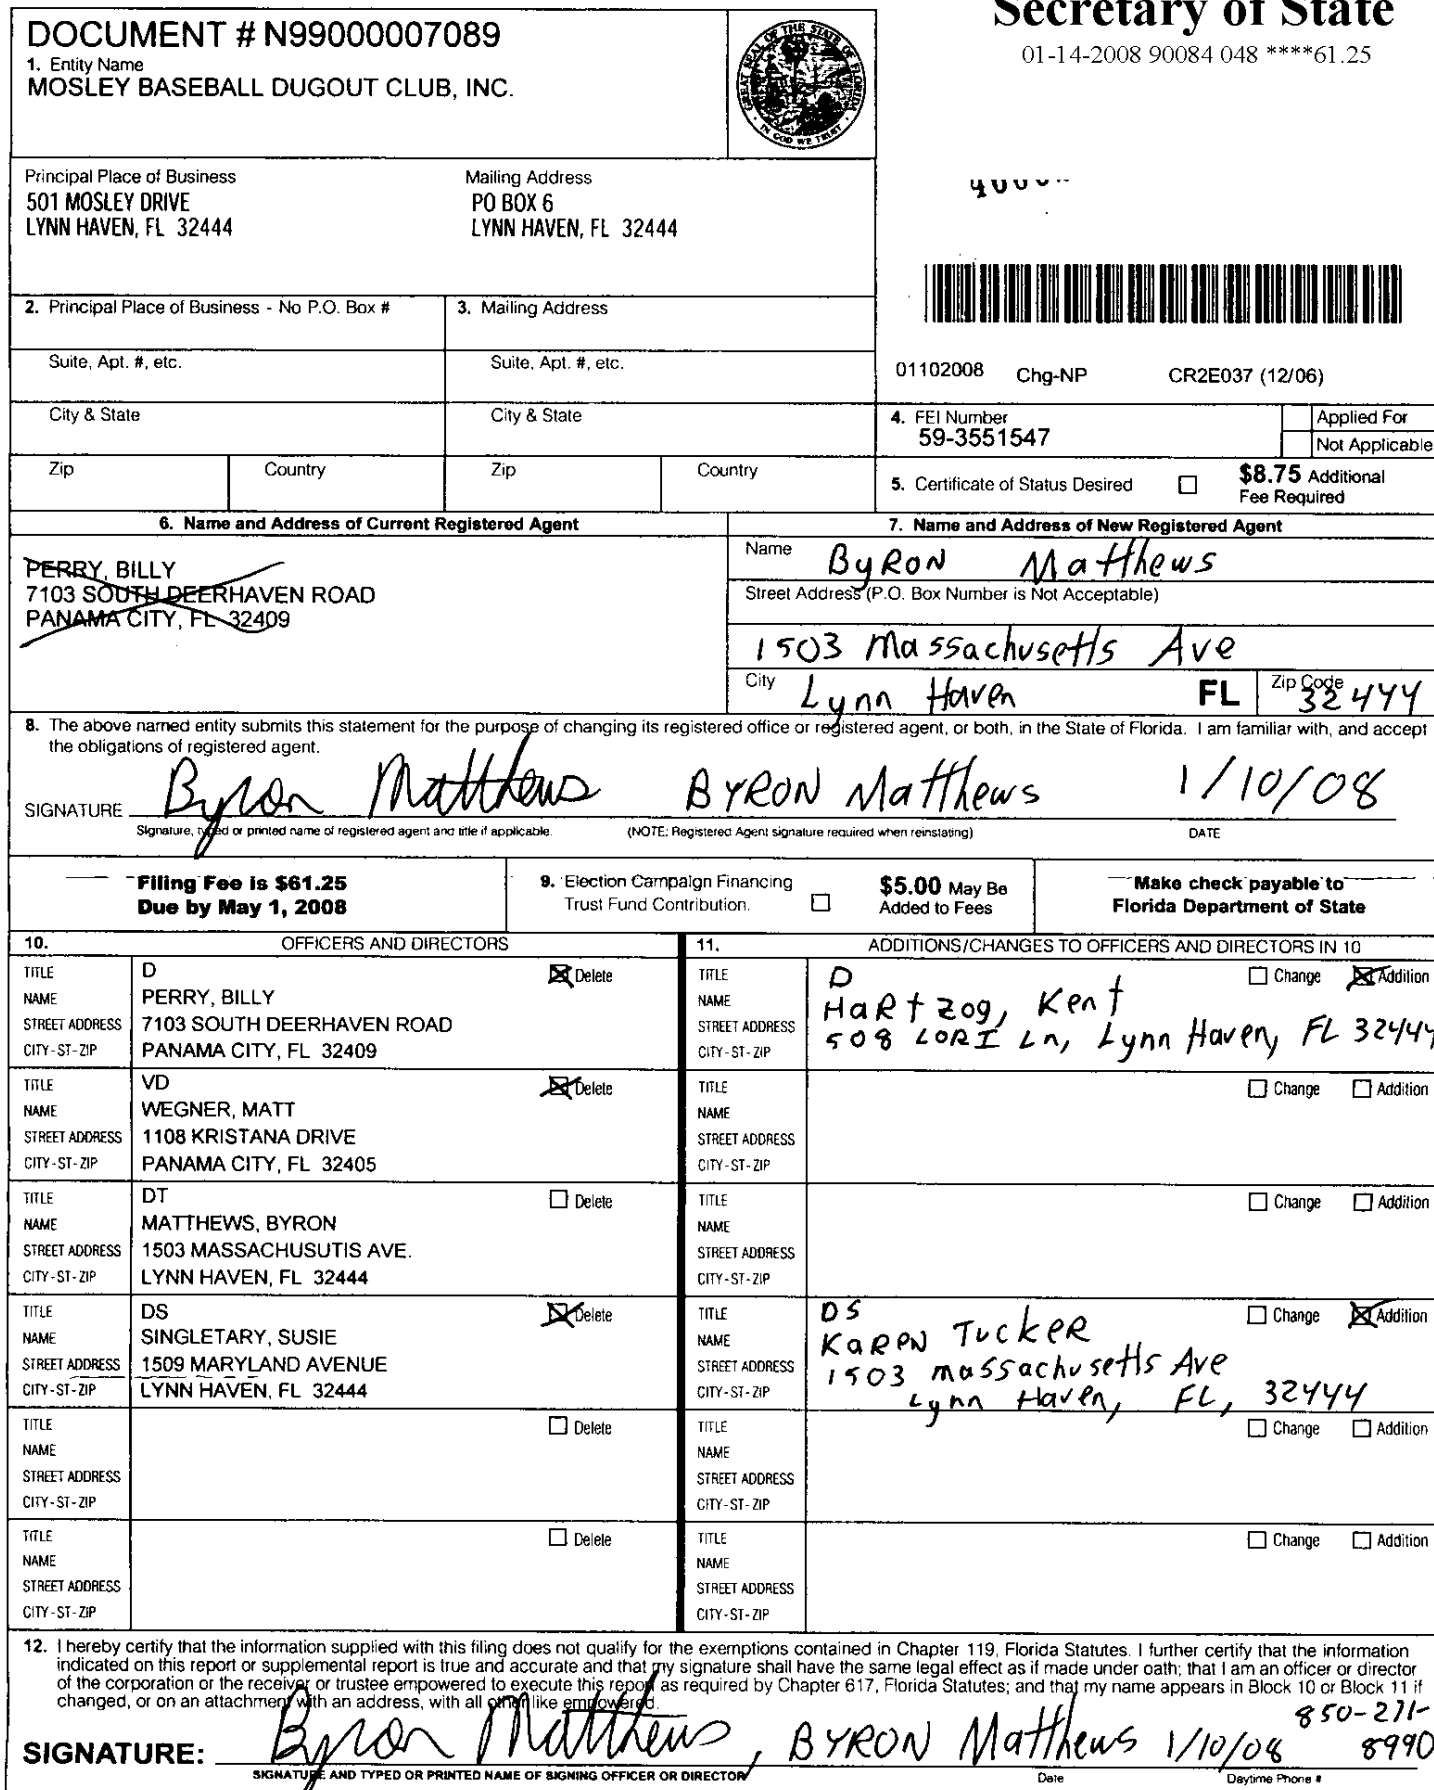 Secretary of State
01-14-2008 90084 048 ****61.25
DOCUMENT # N99000007089
1. Entity Name
MOSLEY BASEBALL DUGOUT CLUB, INC.
GREAT SEAL OF THE STATE OF FLORIDA
IN GOD WE TRUST
Principal Place of Business
501 MOSLEY DRIVE
LYNN HAVEN, FL 32444
Mailing Address
PO BOX 6
LYNN HAVEN, FL 32444
2. Principal Place of Business - No P.O. Box #
3. Mailing Address
Suite, Apt. #, etc.
Suite, Apt. #, etc.
City & State
City & State
Zip
Country
Zip
Country
01102008 Chg-NP CR2E037 (12/06)
4. FEI Number
59-3551547
Applied For
Not Applicable
5. Certificate of Status Desired
$8.75 Additional
Fee Required
6. Name and Address of Current Registered Agent
PERRY, BILLY
7103 SOUTH DEERHAVEN ROAD
PANAMA CITY, FL 32409
7. Name and Address of New Registered Agent
Name Byron Matthews
Street Address (P.O. Box Number is Not Acceptable)
1503 Massachusetts Ave
City Lynn Haven FL Zip Code 32444
8. The above named entity submits this statement for the purpose of changing its registered office or registered agent, or both, in the State of Florida. I am familiar with, and accept
the obligations of registered agent.
SIGNATURE Byron Matthews BYRON Matthews 1/10/08
Signature, typed or printed name of registered agent and title if applicable. (NOTE: Registered Agent signature required when reinstating) DATE
Filing Fee is $61.25
Due by May 1, 2008
9. Election Campaign Financing
Trust Fund Contribution.
$5.00 May Be
Added to Fees
Make check payable to
Florida Department of State
10. OFFICERS AND DIRECTORS
TITLE D Delete
NAME PERRY, BILLY
STREET ADDRESS 7103 SOUTH DEERHAVEN ROAD
CITY-ST-ZIP PANAMA CITY, FL 32409
TITLE VD Delete
NAME WEGNER, MATT
STREET ADDRESS 1108 KRISTANA DRIVE
CITY-ST-ZIP PANAMA CITY, FL 32405
TITLE DT Delete
NAME MATTHEWS, BYRON
STREET ADDRESS 1503 MASSACHUSUTIS AVE.
CITY-ST-ZIP LYNN HAVEN, FL 32444
TITLE DS Delete
NAME SINGLETARY, SUSIE
STREET ADDRESS 1509 MARYLAND AVENUE
CITY-ST-ZIP LYNN HAVEN, FL 32444
TITLE Delete
NAME
STREET ADDRESS
CITY-ST-ZIP
TITLE Delete
NAME
STREET ADDRESS
CITY-ST-ZIP
11. ADDITIONS/CHANGES TO OFFICERS AND DIRECTORS IN 10
TITLE D Change Addition
NAME Hartzog, Kent
STREET ADDRESS 508 LORI Ln, Lynn Haven, FL 32444
CITY-ST-ZIP
TITLE Change Addition
NAME
STREET ADDRESS
CITY-ST-ZIP
TITLE Change Addition
NAME
STREET ADDRESS
CITY-ST-ZIP
TITLE DS Change Addition
NAME Karen Tucker
STREET ADDRESS 1503 Massachusetts Ave
CITY-ST-ZIP Lynn Haven, FL, 32444
TITLE Change Addition
NAME
STREET ADDRESS
CITY-ST-ZIP
TITLE Change Addition
NAME
STREET ADDRESS
CITY-ST-ZIP
12. I hereby certify that the information supplied with this filing does not qualify for the exemptions contained in Chapter 119, Florida Statutes. I further certify that the information
indicated on this report or supplemental report is true and accurate and that my signature shall have the same legal effect as if made under oath; that I am an officer or director
of the corporation or the receiver or trustee empowered to execute this report as required by Chapter 617, Florida Statutes; and that my name appears in Block 10 or Block 11 if
changed, or on an attachment with an address, with all other like empowered.
850-271-
SIGNATURE: Byron Matthews, BYRON Matthews 1/10/08 8990
SIGNATURE AND TYPED OR PRINTED NAME OF SIGNING OFFICER OR DIRECTOR Date Daytime Phone #